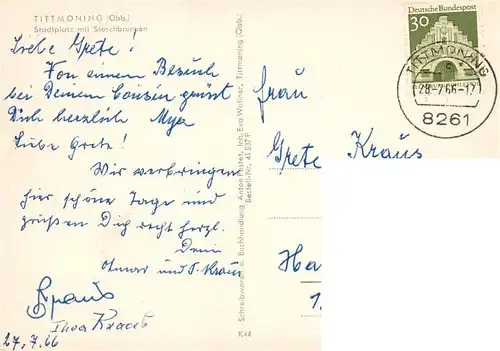 TITTMONING (Obb.)
Stadtplatz mit Storchbrunnen
Liebe Grete!
Von einem Besuch
bei Deinem Cousin grüsst
Dich herzlich
Liebe Grete!
Wir verbringen
hier schöne Tage und
grüßen Dich recht herzl.
Dein
Otmar und T. Kraus
27.7.66
Schreibwaren u. Buchhandlung Anton Pustet, Inh. Eva Wallner, Tittmoning (Obb.)
Bestell-Nr. 41 937 F
K44
Deutsche Bundespost
30
TITTMONING
28.-7.66-17
8261
Frau
Grete Kraus
Ha
1.